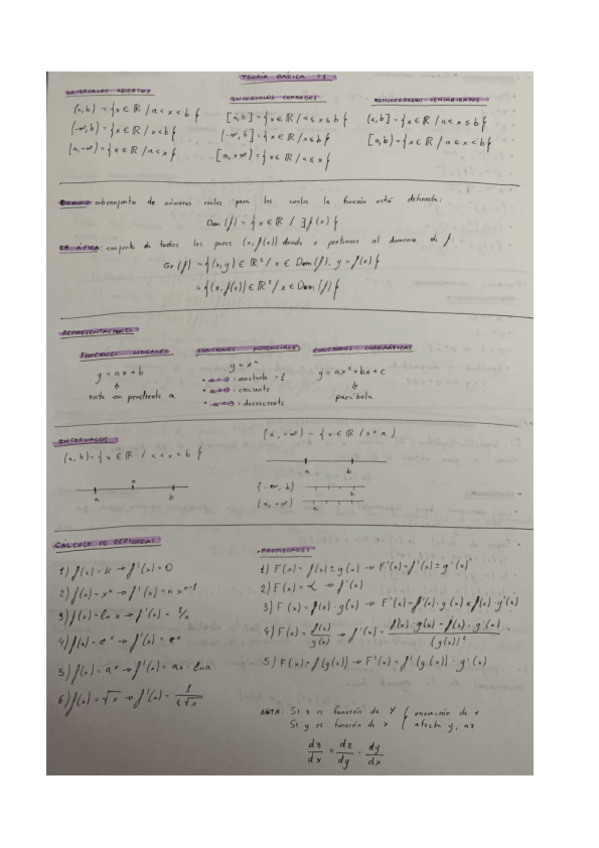 TEORÍA BÁSICA T1
INTERVALOS ABIERTOS
(a,b) = {x ∈ ℝ / a < x < b}
(-∞,b) = {x ∈ ℝ / x < b}
(a,+∞) = {x ∈ ℝ / a < x}
INTERVALOS CERRADOS
[a,b] = {x ∈ ℝ / a ≤ x ≤ b}
(-∞,b] = {x ∈ ℝ / x ≤ b}
[a,+∞) = {x ∈ ℝ / a ≤ x}
(a,b] = {x ∈ ℝ / a < x ≤ b}
[a,b) = {x ∈ ℝ / a ≤ x < b}
subconjunto de números reales para los cuales la función está definida:
Dom(f) = {x ∈ ℝ / ∃ f(x)}
GRÁFICA: conjunto de todos los pares (x, f(x)) donde x pertenece al dominio de f:
Gr(f) = {(x,y) ∈ ℝ² / x ∈ Dom(f), y = f(x)}
= {(x, f(x)) ∈ ℝ² / x ∈ Dom(f)}
REPRESENTACIONES
FUNCIONES LINEALES
y = ax + b
recta con pendiente a
FUNCIONES POTENCIALES
y = xᵃ
: constante = 1
: creciente
: decreciente
FUNCIONES CUADRÁTICAS
y = ax² + bx + c
parábola
INTERVALOS
(a,b) = {x ∈ ℝ / a < x < b}
a x b
(a,+∞) = {x ∈ ℝ / x > a}
a b
(-∞, b)
b
(a, +∞)
a
CÁLCULO DE DERIVADAS
1) f(x) = k → f'(x) = 0
2) f(x) = xⁿ → f'(x) = n xⁿ⁻¹
3) f(x) = ln x → f'(x) = 1/x
4) f(x) = eˣ → f'(x) = eˣ
5) f(x) = aˣ → f'(x) = aˣ · ln a
6) f(x) = √x → f'(x) = 1/(2√x)
PROPIEDADES
1) F(x) = f(x) ± g(x) → F'(x) = f'(x) ± g'(x)
2) F(x) = α → f'(x)
3) F(x) = f(x) · g(x) → F'(x) = f'(x) · g(x) + f(x) · g'(x)
4) F(x) = f(x)/g(x) → f'(x) = f'(x) · g(x) - f(x) · g'(x) / (g(x))²
5) F(x) = f(g(x)) → F'(x) = f'(g(x)) · g'(x)
NOTA: Si z es función de Y { variación de x
Si y es función de x { afecta y, a z
dz/dx = dz/dy · dy/dx